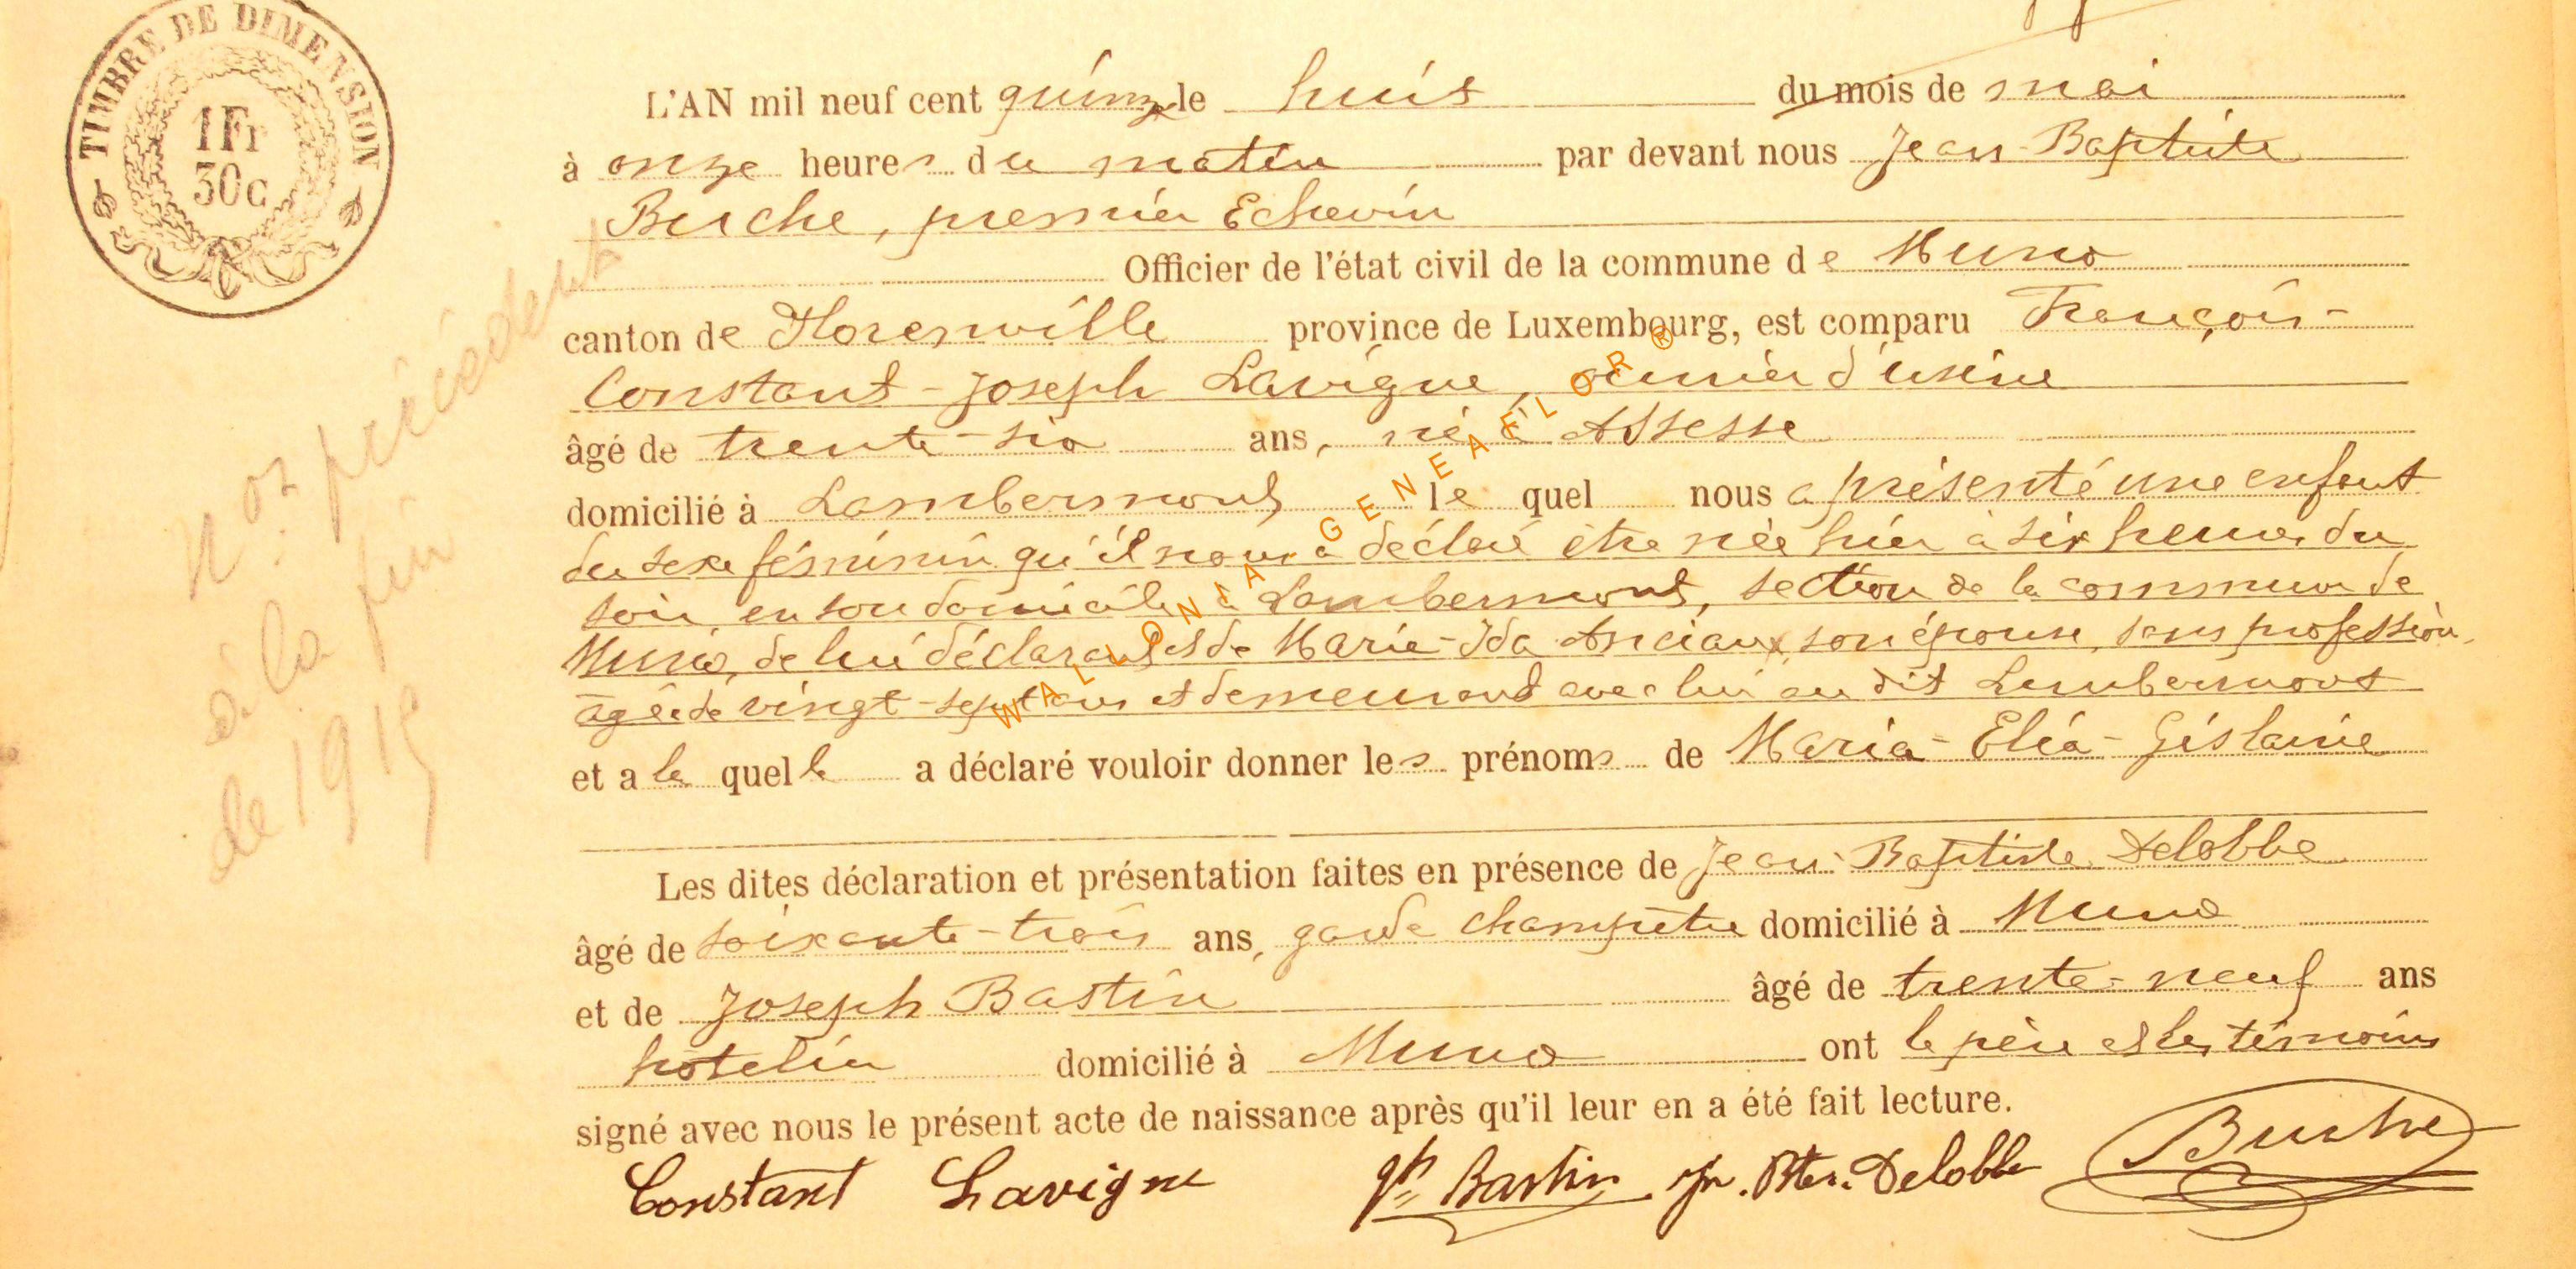 TIMBRE DE DIMENSION
1Fr
30c
L'AN mil neuf cent quinze le huit du mois de mai
à onze heures du matin par devant nous Jean Baptiste
Buche, premier Echevin
Officier de l'état civil de la commune de Muno
canton de Florenville province de Luxembourg, est comparu François-
Constant-Joseph Lavigne, ouvrier d'usine
âgé de trente-six ans, né à Assesse
domicilié à Lambermont lequel nous a présenté une enfant
du sexe féminin qu'il nous a déclaré être née hier à six heures du
soir en son domicile à Lambermont, section de la commune de
Muno, de lui déclarant et de Marie-Ida Anciaux, son épouse, sans profession,
âgée de vingt-sept ans et demeurant avec lui au dit Lambermont
et a le quelle a déclaré vouloir donner les prénoms de Maria-Elia-Gislaine
Les dites déclaration et présentation faites en présence de Jean-Baptiste Delobbe
âgé de soixante-trois ans, garde champêtre domicilié à Muno
et de Joseph Bastin âgé de trente-neuf ans
hôtelier domicilié à Muno ont le père et les témoins
signé avec nous le présent acte de naissance après qu'il leur en a été fait lecture.
Constant Lavigne Jh Bastin Jn. Bte. Delobbe Buche
Nos précédents
à la fin
de 1915
WALLONIA GENEAFLOR ®